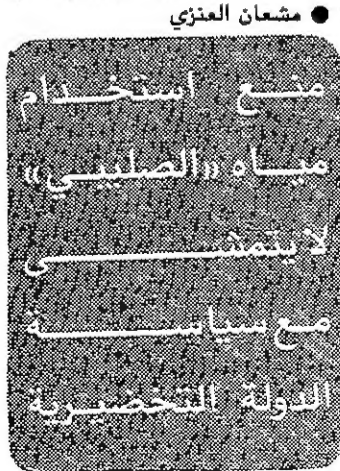 ● مشعان العنزي
منع استخدام
مياه «الصليبي»
لا يتمشى
مع سياسة
الدولة التخضيرية